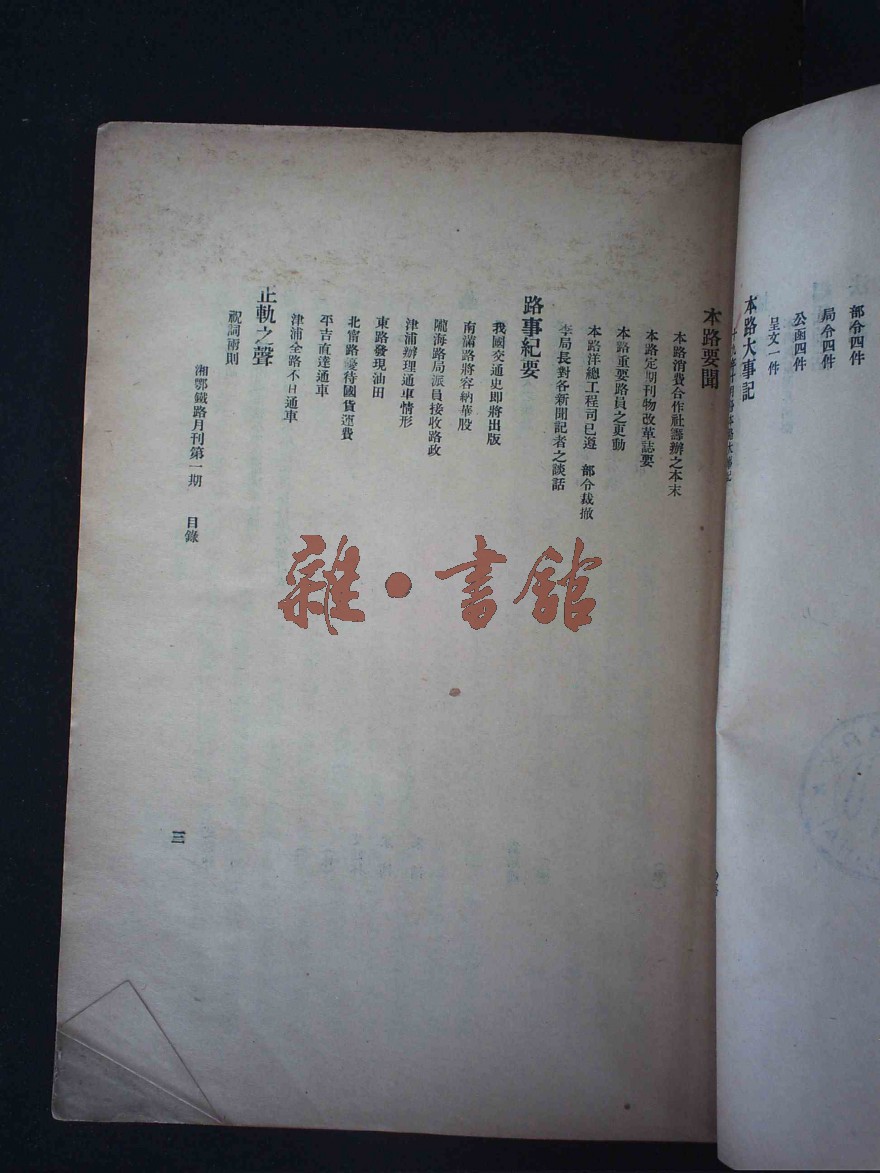 部令四件
局令四件
公函四件
呈文一件
本路大事記
本路要聞
本路消費合作社籌辦之本末
本路定期刊物改革誌要
本路重要路員之更動
本路洋總工程司已遵 部令裁撤
李局長對各新聞記者之談話
路事紀要
我國交通史即將出版
南滿路將容納華股
隴海路局派員接收路政
津浦辦理通車情形
東路發現油田
北甯路優待國貨運費
平吉直達通車
津浦全路不日通車
正軌之聲
祝詞兩則
湘鄂鐵路月刊第一期 目錄
三
雜·書館